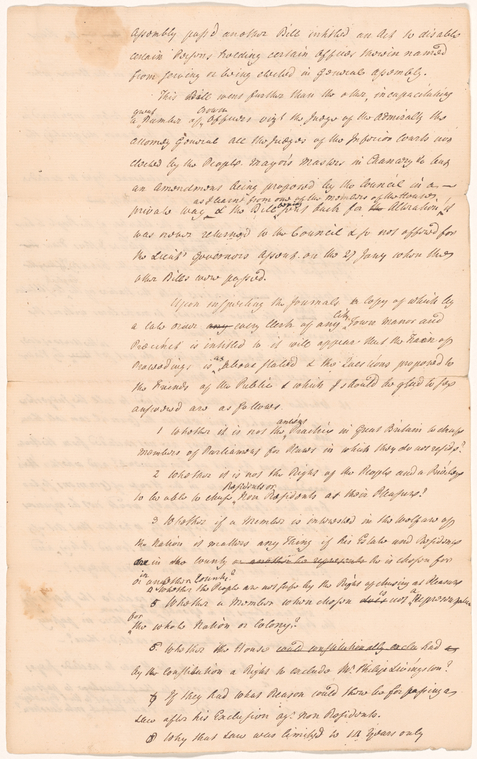 Assembly pass'd another Bill intitled an Act to disable
certain Persons holding certain Offices therein named
from serving & being elected in General Assembly.
This Bill went further than the other, in incapacitating
great Crown
a Number of Officers vizt the Judge of the Admiralty the
Attorney General all the Judges of the Inferior Courts not
elected by the People Mayors Masters in Chancery &c but
an Amendment being proposed by the Council in a
as I learnt from one of the members of the House
private way & the Bill being sent back for the Alteration it
was never returned to the Council & so not offered for
the Lieut Governors Assent on the 27 Jany when the
other Bills were passed.
Upon inspecting the Journals a Copy of which by
a late order every Clerk of any City Town Manor and
Precinct is entitled to it will appear that the Train of
Proceedings is as above stated & the Questions proposed to
the Friends of the Public & which I should be glad to see
answered are as follows
1 Whether it is not the antient Practice in Great Britain to chuse
members of Parliament for Places in which they do not reside?
2 Whether it is not the Right of the People and a Privilege
to be able to chuse Residents or Non Residents at their Pleasure?
3 Whether if a Member is interested in the Welfare of
the Nation it matters any thing if his Estate and Residence
are in the County or another he represents he is chosen for
or in another County?
4 Whether the People are not Judges by the Right of chusing
5 Whether a Member when chosen does not Represent
for the whole Nation or Colony?
6. Whether the House could constitutionally exclu had
by the Constitution a Right to exclude Mr Philip Livingston?
7 If they had what Reason could there be for passing a
Law after his Exclusion agt. non Residents.
8 Why that Law was limited to 14 Years only